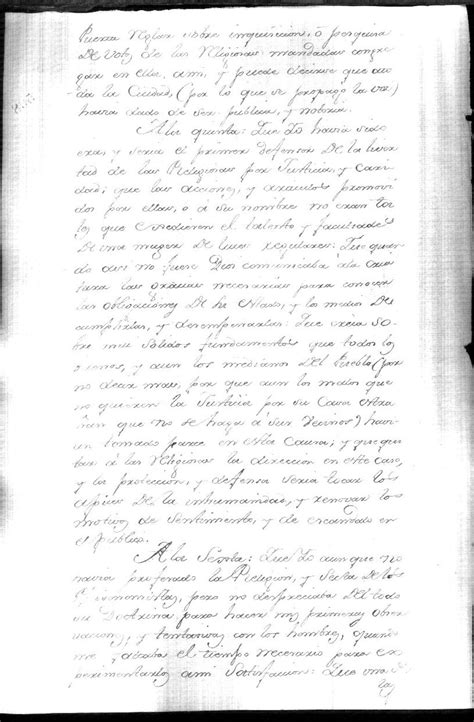 Puerta Reglar sobre inquisicion, ó pesquisa
de votos de las Religiosas mandadas congre
gar en ella, ami, y puede decirse que to
da la Ciudad, (por lo que se propagó la voz)
havia dado de ser publica, y notoria.
A la quinta: Que Yo havia sido
era, y seria el primer defensor de la liver
tad de las Religiosas por Justicia, y cari
dad; que las acciones, y articulos promovi
dos por ellas, o á su nombre no eran ta
les que excediesen el talento y facultades
de una muger de luces regulares: Que quan
do asi no fuese Dios comunicaba á la
las gracias necesarias para conocer
las obligaciones de su estado, y los medios de
cumplirlas, y desempeñarlas: Que creia so
bre mui solidos fundamentos que todos los
y aun los medianos del Pueblo (por
no decir mas, por que aun los malos que
no quieren la Justicia por su Casa
ñan que no se haga á sus vecinos) havi
an tomado parte en esta Causa; y que qui
tar á las Religiosas la direccion en este caso,
y la proteccion, y defensa seria tocar los
apices de la inhumanidad, y renovar los
motivos de sentimiento, y de escandalo en
el publico.
A la Sexta: Que Yo aunque no
havia profesado la Religion, y Secta de los
pero no despreciaba del todo
su Doctrina para hacer mis primeras obser
vaciones, y tentativas con los hombres, quando
me faltaba el tiempo necesario para ex
perimentarlos a mi Satisfaccion: Que una